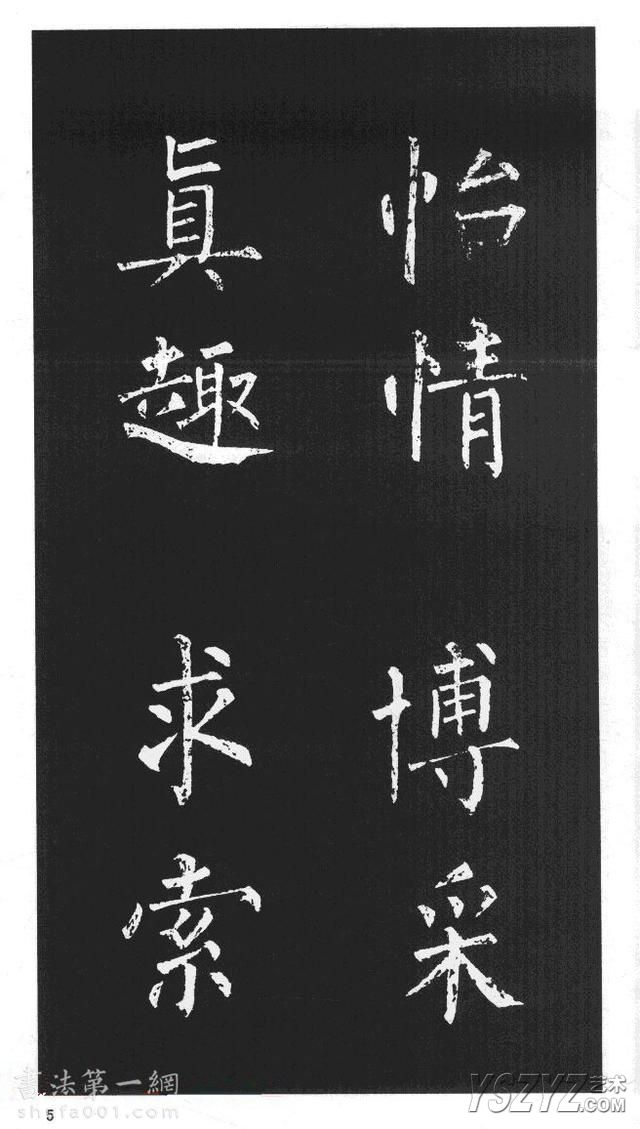 怡情 博采
眞趣 求索
書法第一網
shufa001.com
YSZYZ艺术.COM
5